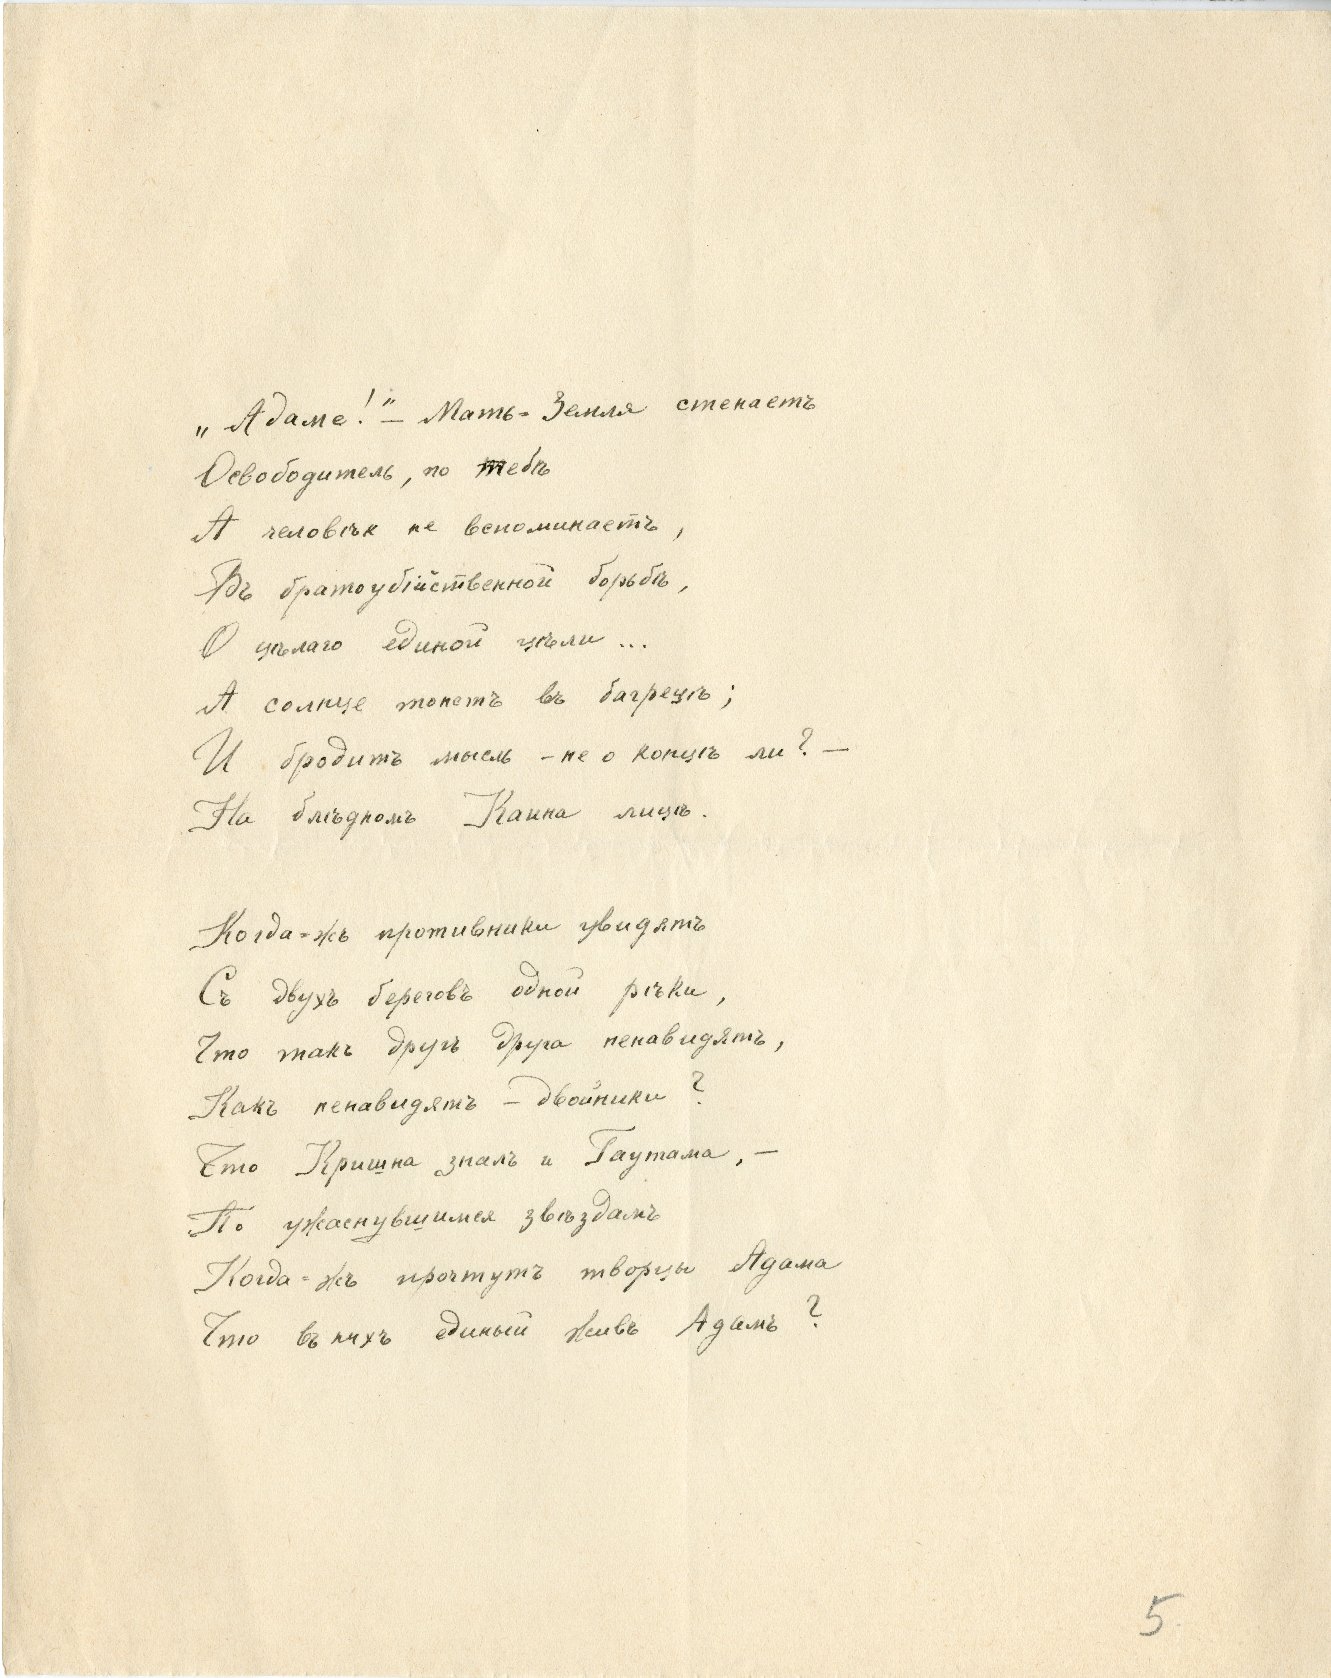 „Адаме!“ — Мать-Земля стенаетъ
Освободитель, по тебѣ
А человѣк не вспоминаетъ,
Въ братоубійственной борьбѣ,
О цѣлаго единой цѣли...
А солнце тонетъ въ багрецѣ;
И бродитъ мысль — не о концѣ ли? —
На блѣдномъ Каина лицѣ.
Когда-жъ противники увидятъ
Съ двухъ береговъ одной рѣки,
Что такъ другъ друга ненавидятъ,
Какъ ненавидятъ — двойники?
Что Кришна зналъ и Гаутама, —
По ужаснувшимся звѣздамъ
Когда-жъ прочтутъ творцы Адама
Что въ нихъ единый живъ Адамъ?
5